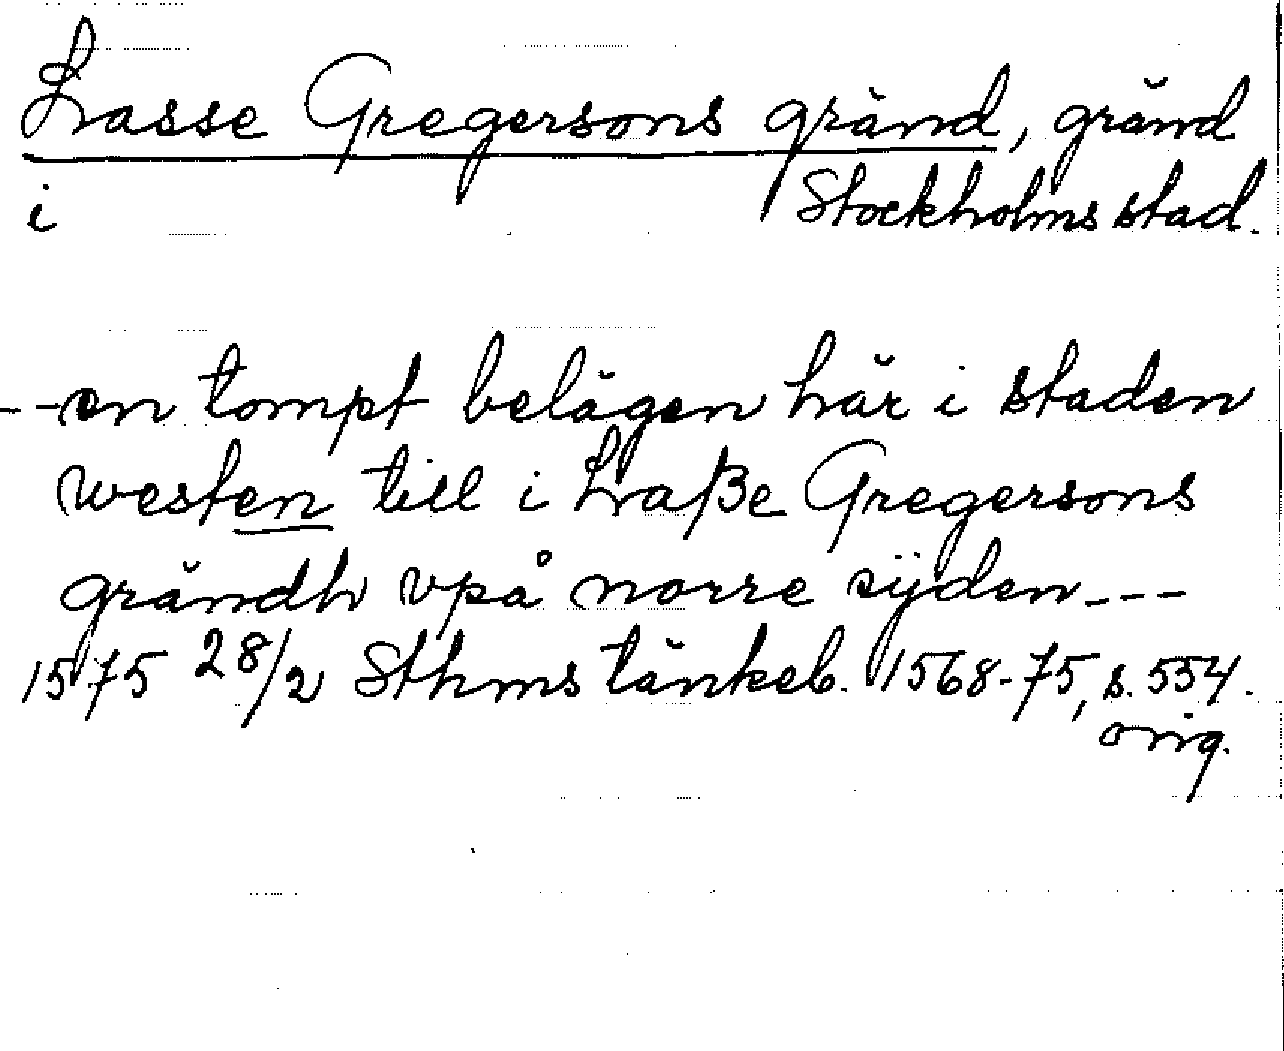 Lasse Gregersons gränd, gränd
i Stockholms stad.
--en tompt belägen här i staden
westen till i Laße Gregersons
gråndh vpå norre sÿden---
1575 28/2 Sthms tänkeb. 1568-75, s. 554.
orig.